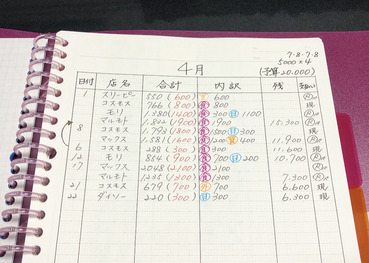 7・8・7・8
5000×4
4月 (予算20.000)
日付 店名 合計 内訳 残 支払い
1 スリーピー 550 (600) 600
コスモス 766 (800) 食 800 現
モリ 1.380 (1400) 食 300 日 1100
マルモト 1.822 (1900) 食 1900 15.300
8 コスモス 1.793 (1800) 食 1500 日 300 現
マックス 1.581 (1600) 食 1200 400 11.900
6 コスモス 288 (300) 食 300 11.600 現
12 モリ 854 (900) 食 700 日 200 10.700
17 マックス 2048 (2100) 食 2100
マルモト 1.235 (1300) 食 1300 7.300
21 コスモス 679 (700) 外 700 6.600 現
22 ダイソー 220 (300) 日 300 6.300 現